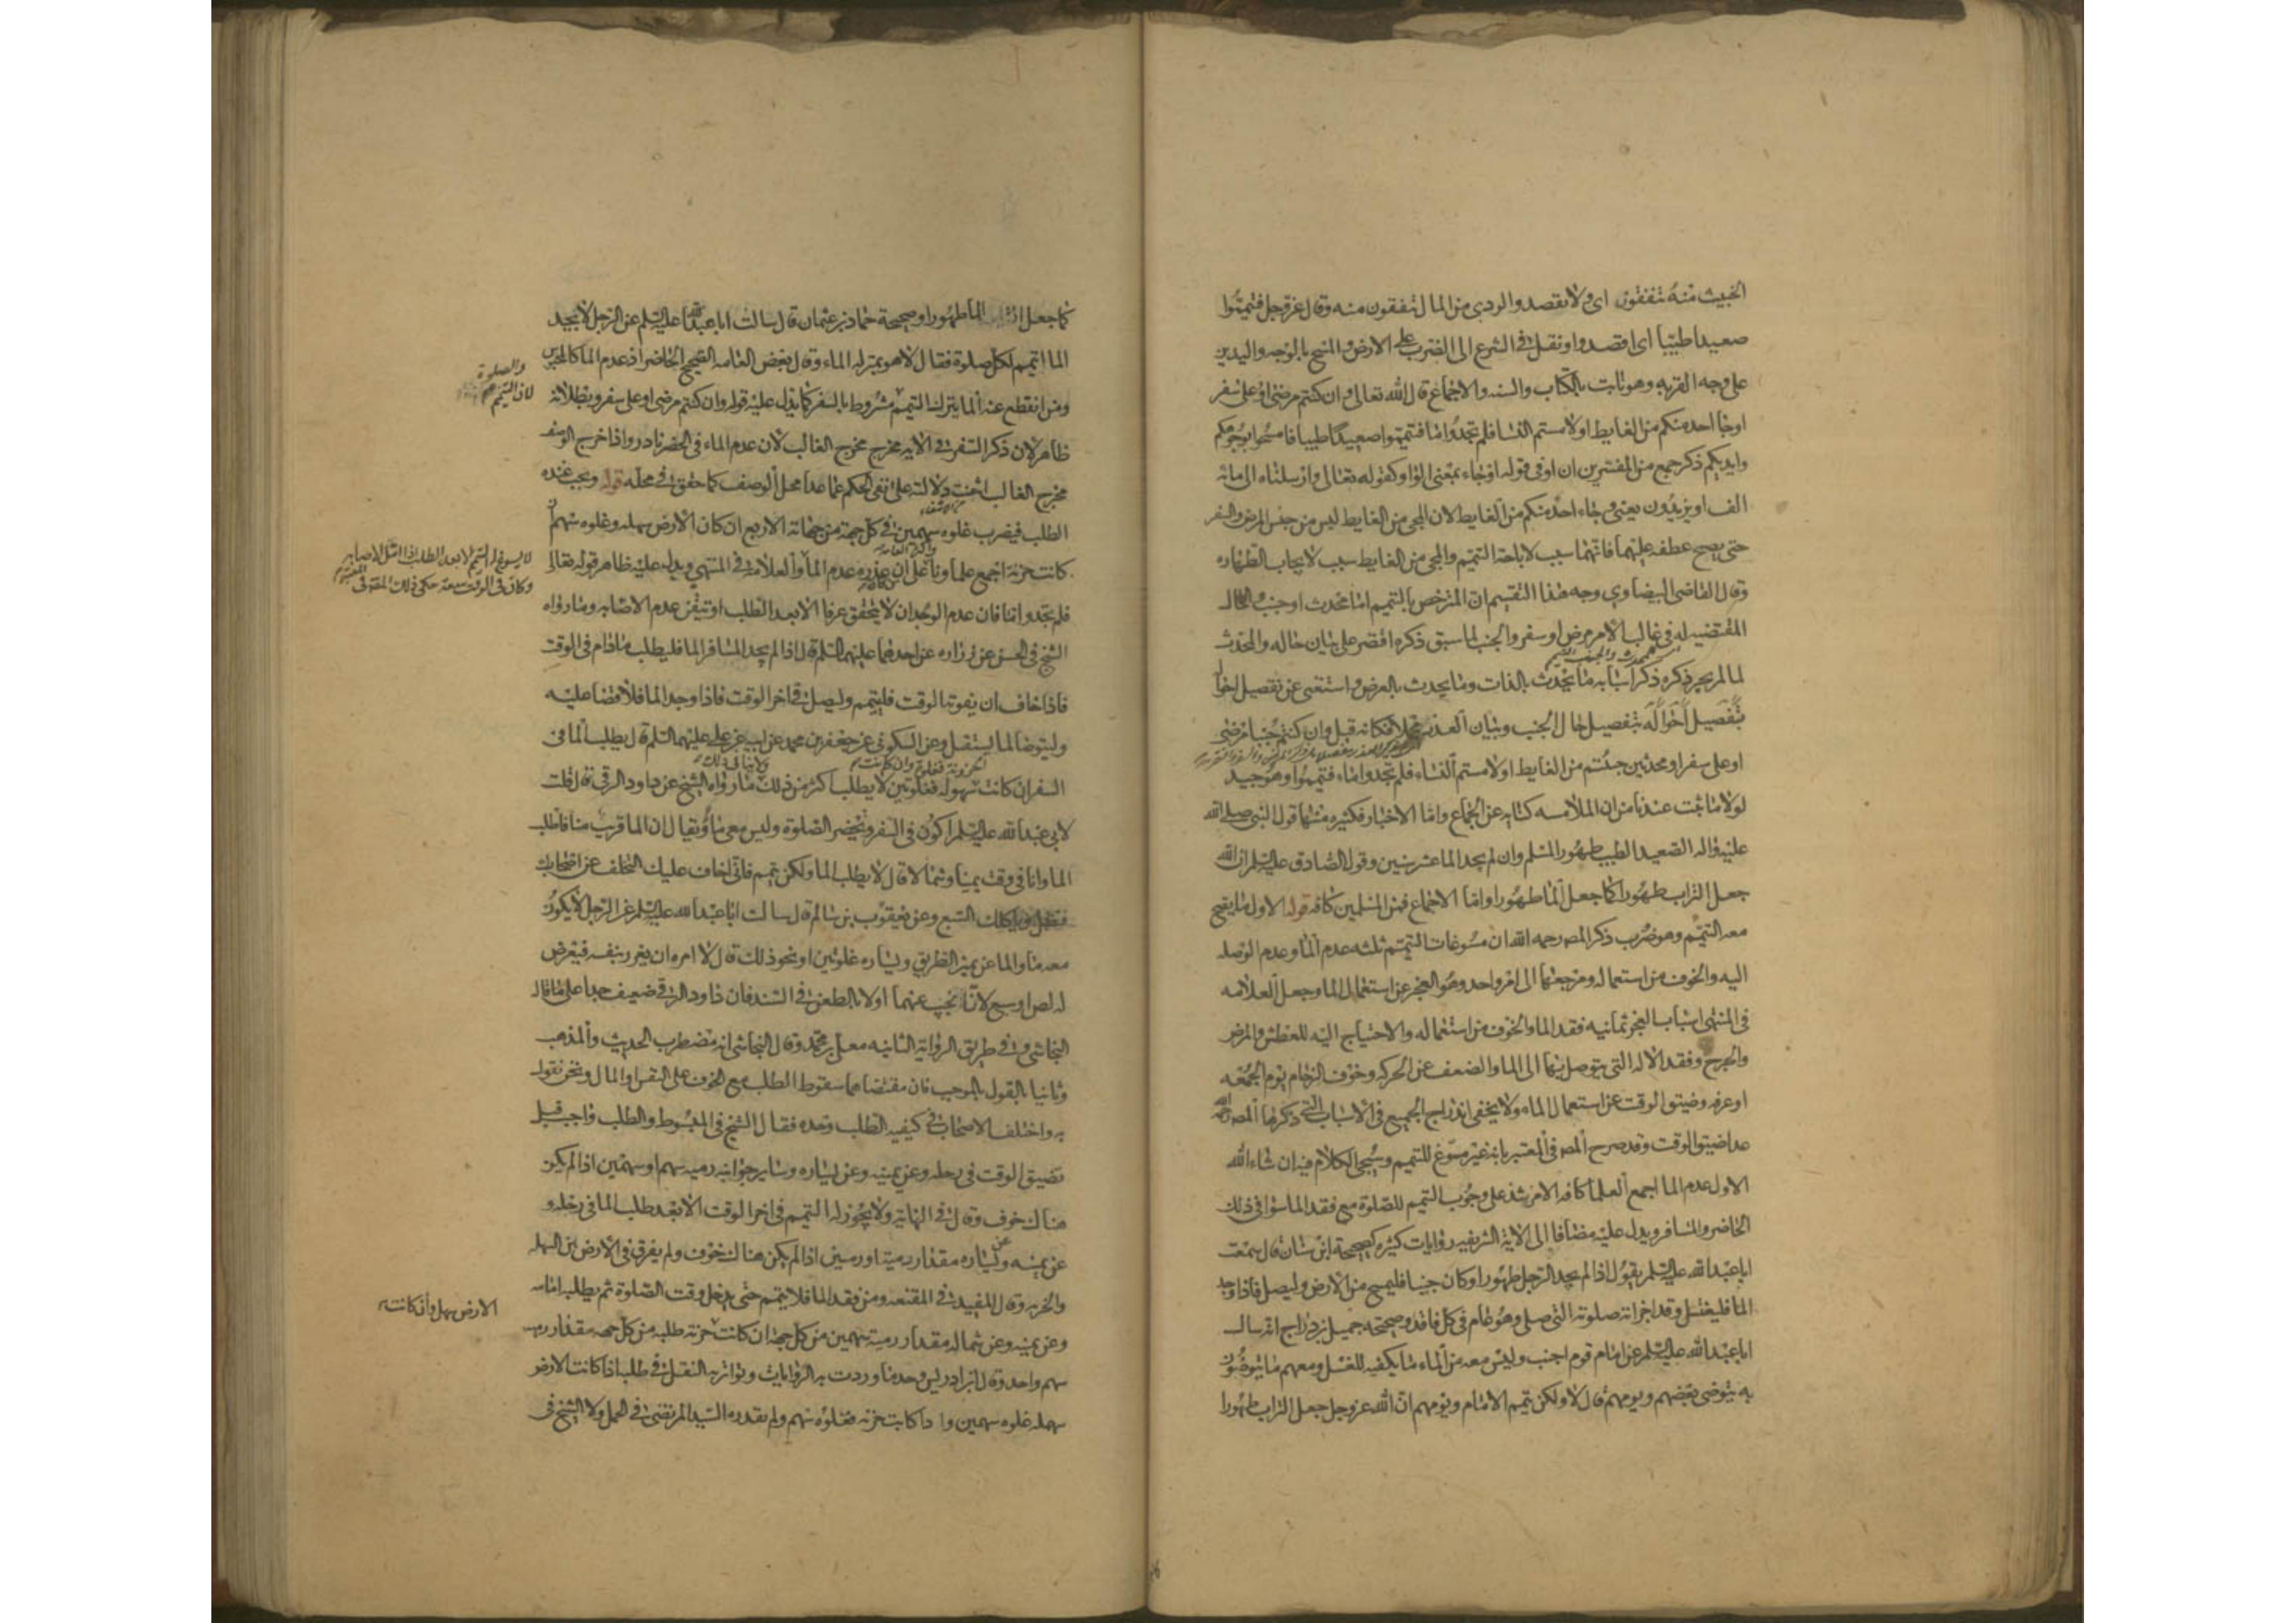 الخبيث منه تنفقون اى ولا تقصدوا الردى من المال تنفقون منه وقال عز وجل فتيمموا
صعيدا طيبا اى اقصدوا ونقل فى الشرع الى الضرب على الارض والمسح بالوجه واليدين
على وجه القربه وهو ثابت بالكتاب والسنه والاجماع قال الله تعالى وان كنتم مرضى او على سفر
او جا احد منكم من الغايط او لامستم النسا فلم تجدوا ما فتيمموا صعيدا طيبا فامسحوا بوجوهكم
وايديكم ذكر جمع من المفسرين ان او فى قوله او جاء بمعنى الواو كقوله تعالى وارسلناه الى مائه
الف او يزيدون يعنى وجاء احد منكم من الغايط لان المجى من الغايط ليس من جنس المرض والسفر
حتى يصح عطفه عليهما فانهما سبب لاباحة التيمم والمجى من الغايط سبب لايجاب الطهاره
وقال القاضى البيضاوى وجه هذا التقسيم ان المترخص بالتيمم اما محدث او جنب والحال
المقتضيه له فى غالب الامر مرض او سفر والجنب لما سبق ذكره اقتصر على بيان حاله والمحدث
لما لم يجر ذكره ذكر اسبابه ما يحدث بالذات وما يحدث بالعرض واستغنى عن تفصيل احواله
بتفصيل احواله بتفصيل حال الجنب وبيان العذر مجملا فكانه قيل وان كنتم جنبا مرضى
او على سفر او محدثين جئتم من الغايط او لامستم النساء فلم تجدوا ماء فتيمموا وهو جيد
لولا ما ثبت عندنا من ان الملامسه كنايه عن الجماع واما الاخبار فكثيره منها قول النبى صلى الله
عليه واله الصعيد الطيب طهور المسلم وان لم يجد الما عشر سنين وقول الصادق عليه السلم ان الله
جعل التراب طهورا كما جعل الما طهورا واما الاجماع فمن المسلمين كافه قوله الاول ما يصح
معه التيمم وهو ضرب ذكر المصـ رحمه الله ان مسوغات التيمم ثلثه عدم الما وعدم الوصله
اليه والخوف من استعماله ومرجعها الى امر واحد وهو العجز عن استعمال الما وجعل العلامه
فى المنتهى اسباب العجز ثمانيه فقد الما والخوف من استعماله والاحتياج اليه للعطش والمرض
والجرح وفقد الاله التى يتوصل بها الى الما والضعف عن الحركه وخوف الزحام يوم الجمعه
او عرفه وضيق الوقت عن استعمال الماء ولا يخفى اندراج الجميع فى الاسباب التى ذكرها المصـ رحمه الله
عدا ضيق الوقت وقد صرح المصـ فى المعتبر بانه غير مسوغ للتيمم وسيجى الكلام فيه ان شاء الله
الاول عدم الما اجمع العلما كافه الا من شذ على وجوب التيمم للصلوة مع فقد الما سوا فى ذلك
الحاضر والمسافر ويدل عليه مضافا الى الاية الشريفه روايات كثيره كصحيحة ابن سنان قال سمعت
ابا عبد الله عليه السلم يقول اذا لم يجد الرجل طهورا وكان جنبا فليمسح من الارض وليصل فاذا وجد
الما فليغتسل وقد اجزاته صلوته التى صلى وهو عام فى كل فاقد وصحيحة جميل بن دراج انه سال
ابا عبد الله عليه السلم عن امام قوم اجنب وليس معه من الماء ما يكفيه للغسل ومعهم ما يتوضون
به يتوضى بعضهم ويومهم قال لا ولكن يتيمم الامام ويومهم ان الله عز وجل جعل التراب طهورا
كما جعل الما طهورا وصحيحة حماد بن عثمان قال سالت ابا عبد الله عليه السلم عن الرجل لا يجد
الما ايتيمم لكل صلوة فقال لا هو بمنزله الماء وقال بعض العامه الصحيح الحاضر اذ عدم الما كالمحبوس
ومن انقطع عنه الما يترك التيمم مشروط بالسفر كما يدل عليه قوله وان كنتم مرضى او على سفر وبطلانه
والصلوة
لان التيمم
ظاهر لان ذكر السفر فى الايه مخرج مخرج الغالب لان عدم الماء فى الحضر نادر واذا خرج الوصف
مخرج الغالب انتفت دلالته على نفى الحكم عما عدا محل الوصف كما حقق فى محله قوله ويجب عنده
الطلب فيضرب غلوه سهمين فى كل جهة من جهاته الاربع ان كان الارض سهله وغلوه سهم ان
كانت حزنة اجمع علماونا على ان عذره عدم الما والعلامه فى المنتهى ويدل عليه ظاهر قوله تعالى
لا يسوغ له التيمم الا بعد الطلب اذا امل الاصابه
وكان فى الوقت سعه حكى ذلك المصـ فى المعتبر
فلم تجدوا ما فان عدم الوجدان لا يتحقق عرفا الا بعد الطلب او تيقن عدم الاصابه وما رواه
الشيخ فى الحسن عن زراره عن احدهما عليهما السلم قال اذا لم يجد المسافر الما فليطلب ما دام فى الوقت
فاذا خاف ان يفوته الوقت فليتيمم وليصل فى اخر الوقت فاذا وجد الما فلا قضا عليه
وليتوضا لما يستقبل وعن السكونى عن جعفر بن محمد عن ابيه عن على عليهما السلم قال يطلب الما فى
السفر ان كانت سهوله فغلوتين لا يطلب اكثر من ذلك ما رواه الشيخ عن داود الرقى قال قلت
لابى عبد الله عليه السلم اكون فى السفر وتحضر الصلوة وليس معى ما ويقال ان الما قريب منا فاطلب
الما وانا فى وقت يمينا وشمالا قال لا يطلب الما ولكن تيمم فانى اخاف عليك التخلف عن اصحابك
فتضل وياكلك السبع وعن يعقوب بن سالم قال سالت ابا عبد الله عليه السلم عن الرجل لا يكون
معه ما والما عن يمين الطريق ويساره غلوتين او نحو ذلك قال لا امره ان يغرر بنفسه فيعرض
له لص او سبع لانا نجيب عنهما اولا بالطعن فى السند فان داود الرقى ضعيف جدا على ما قاله
النجاشى وفى طريق الرواية الثانيه معلى بن محمد وقال النجاشى انه مضطرب الحديث والمذهب
وثانيا بالقول بالموجب فان مقتضاهما سقوط الطلب مع الخوف على النفس او المال ونحن نقول
به واختلف الاصحاب فى كيفيه الطلب وحده فقال الشيخ فى المبسوط والطلب واجب قبل
تضيق الوقت فى رحله وعن يمينه وعن يساره وساير جوانبه رميه سهم او سهمين اذا لم يكن
هناك خوف وقال فى النهايه ولا يجوز له التيمم فى اخر الوقت الا بعد طلب الما فى رحله و
عن يمينه وعن يساره مقدار رمية او رميتين اذا لم يكن هناك خوف ولم يفرق فى الارض بين السهله
والحزنه وقال المفيد فى المقنعه ومن فقد الما فلا يتيمم حتى يدخل وقت الصلوة ثم يطلبه امامه
وعن يمينه وعن شماله مقدار رمية سهمين من كل جهة ان كانت حزنه طلبه من كل جهه مقدار رميه
الارض سهله وان كانت
سهم واحد وقال ابن ادريس وحد ما وردت به الروايات وتواتر به النقل فى طلبه اذا كانت الارض
سهله غلوه سهمين واذا كانت حزنه فغلوه سهم ولم يقدره السيد المرتضى فى الجمل ولا الشيخ فى